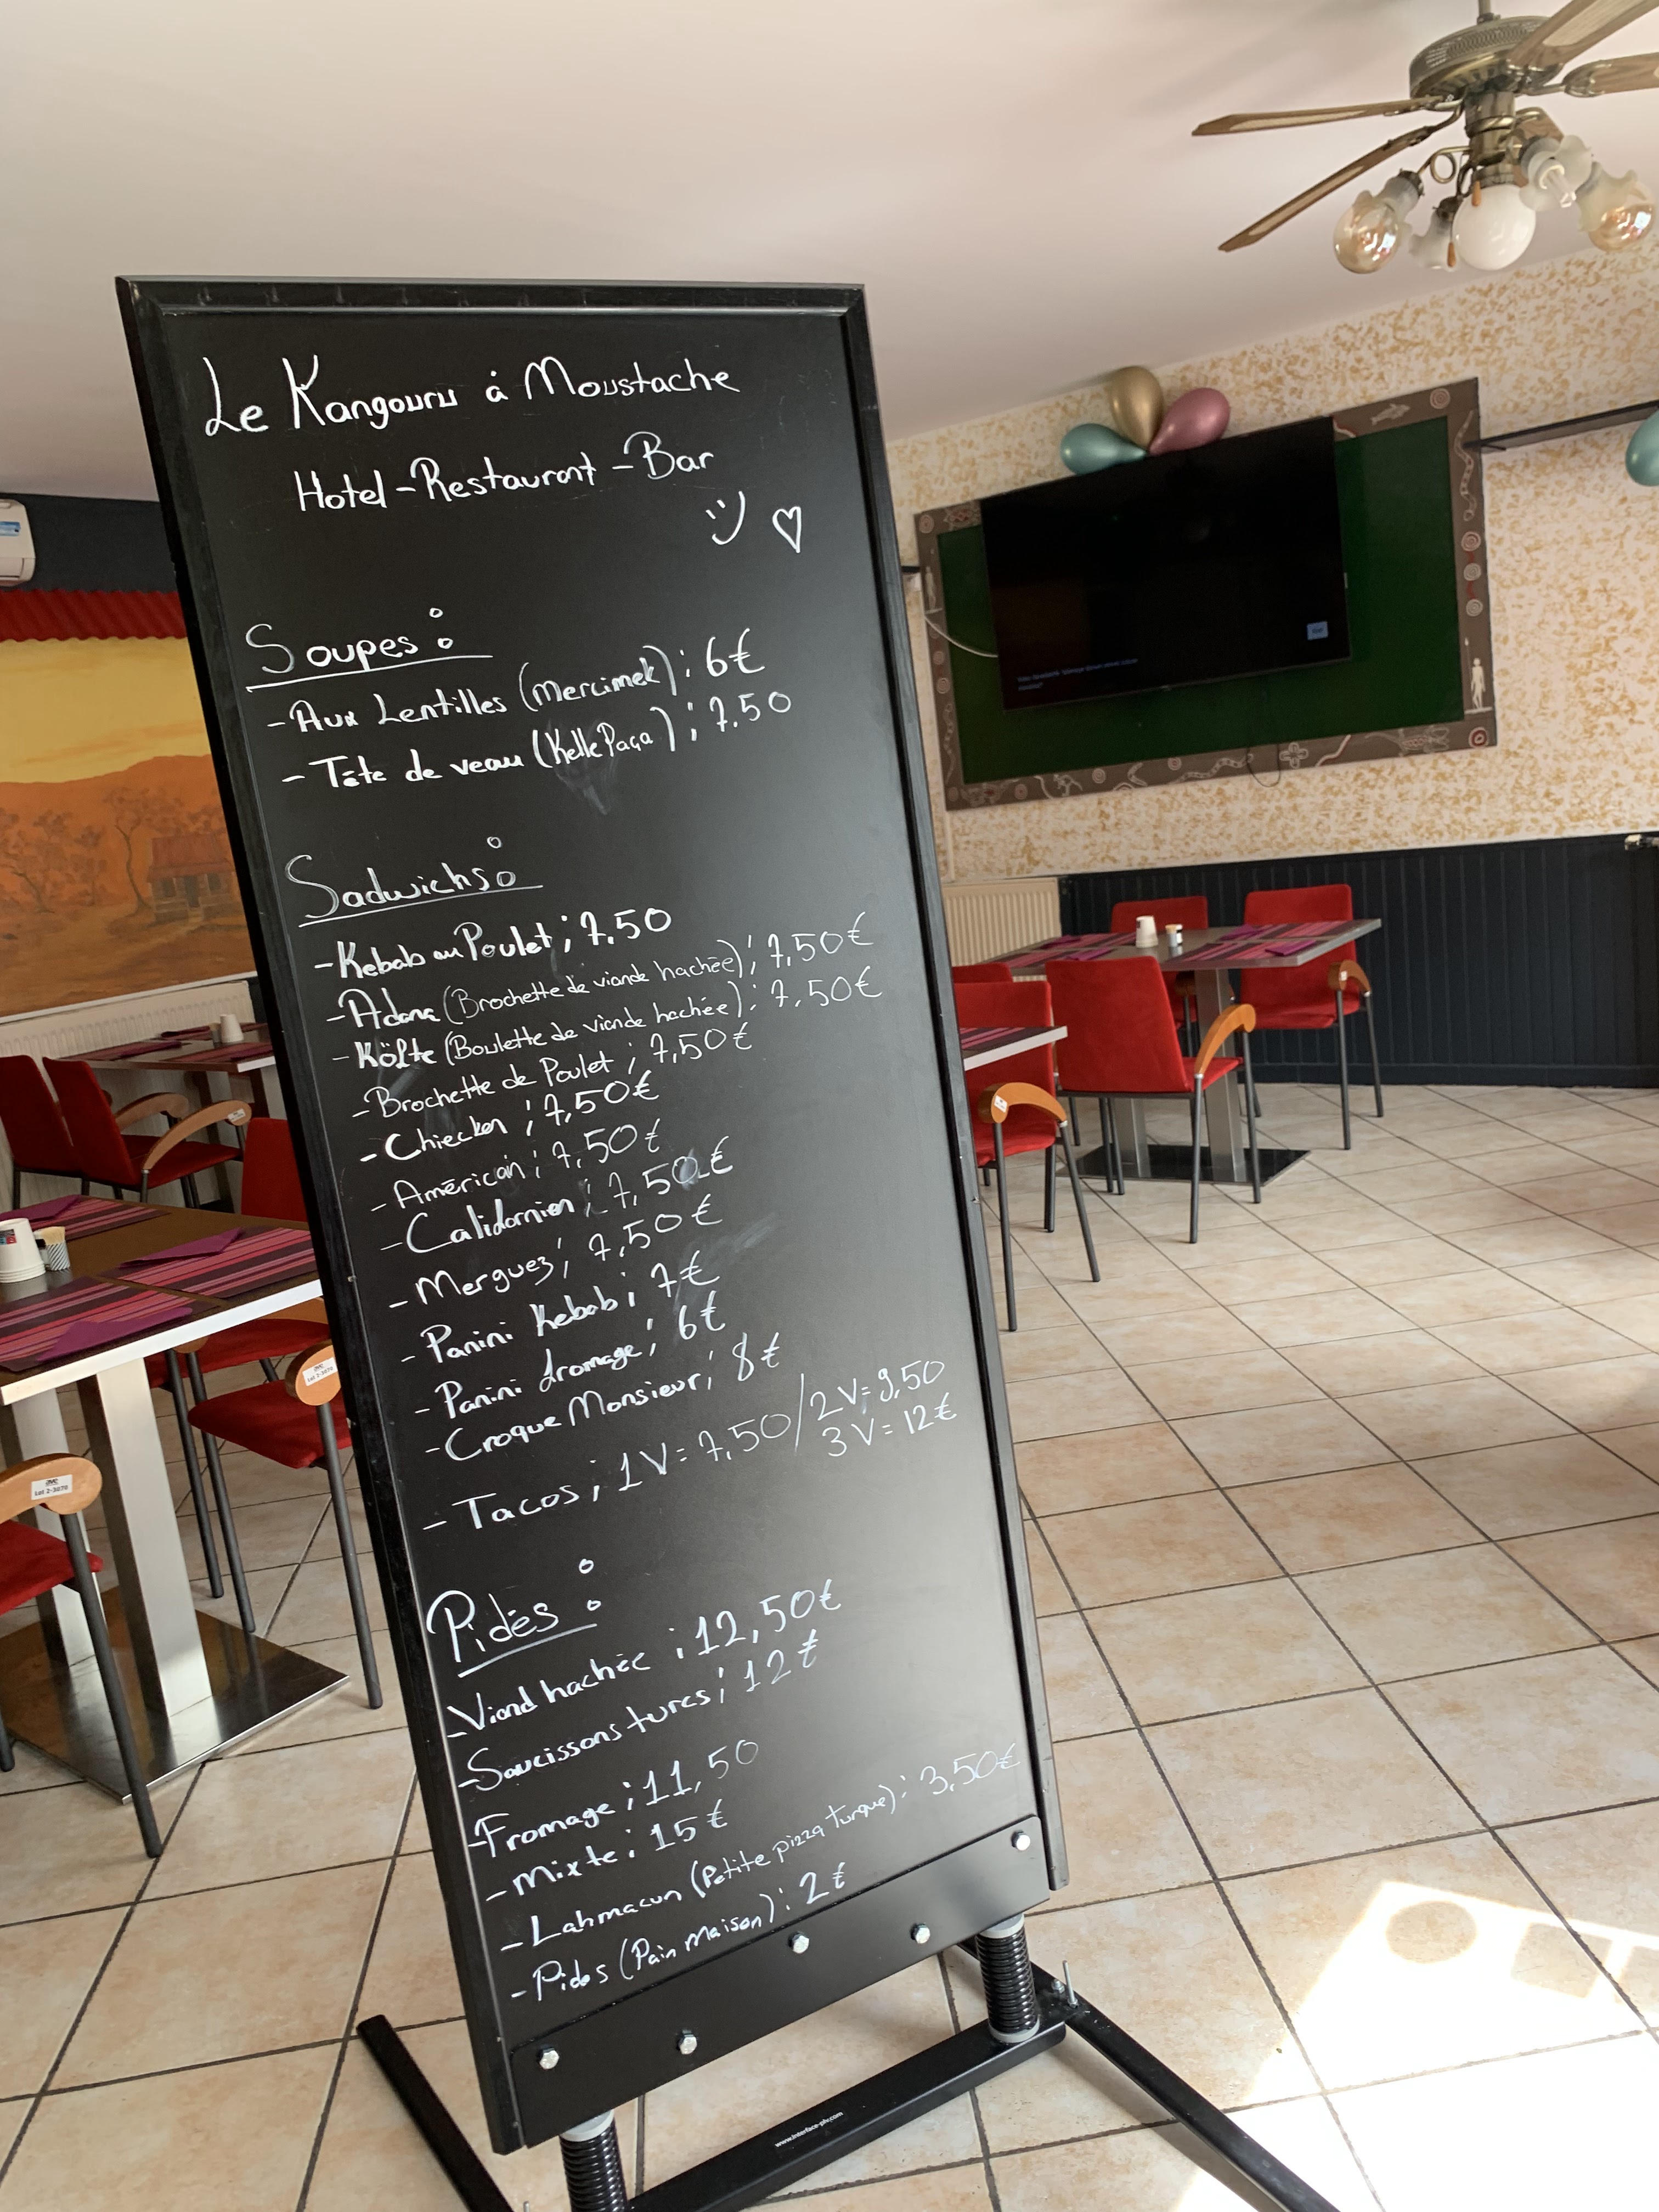 Le Kangouru à Moustache
Hotel-Restaurant-Bar
Soupes :
- Aux Lentilles (mercimek) : 6€
- Tête de veau (Kelle Paça) : 7.50
Sadwichs :
- Kebab ou Poulet ; 7.50
- Adana (Brochette de viande hachée) ; 7,50€
- Köfte (Boulette de viande hachée) : 7.50€
- Brochette de Poulet ; 7,50€
- Chiecken ; 7,50€
- Américain ; 7,50€
- Califormien ; 7,50€
- Merguez ; 7,50€
- Panini Kebab ; 7€
- Panini fromage ; 6€
- Croque Monsieur ; 8€
- Tacos ; 1V = 7,50 / 2V = 9,50
3V = 12€
Pidès :
- Viand hachée ; 12,50€
- Saucissons turcs ; 12€
- Fromage ; 11,50
- Mixte : 15€
- Lahmacun (Petite pizza turque) : 3,50€
- Pides (Pain maison) : 2€
www.interface-plv.com
Lot 2-3070